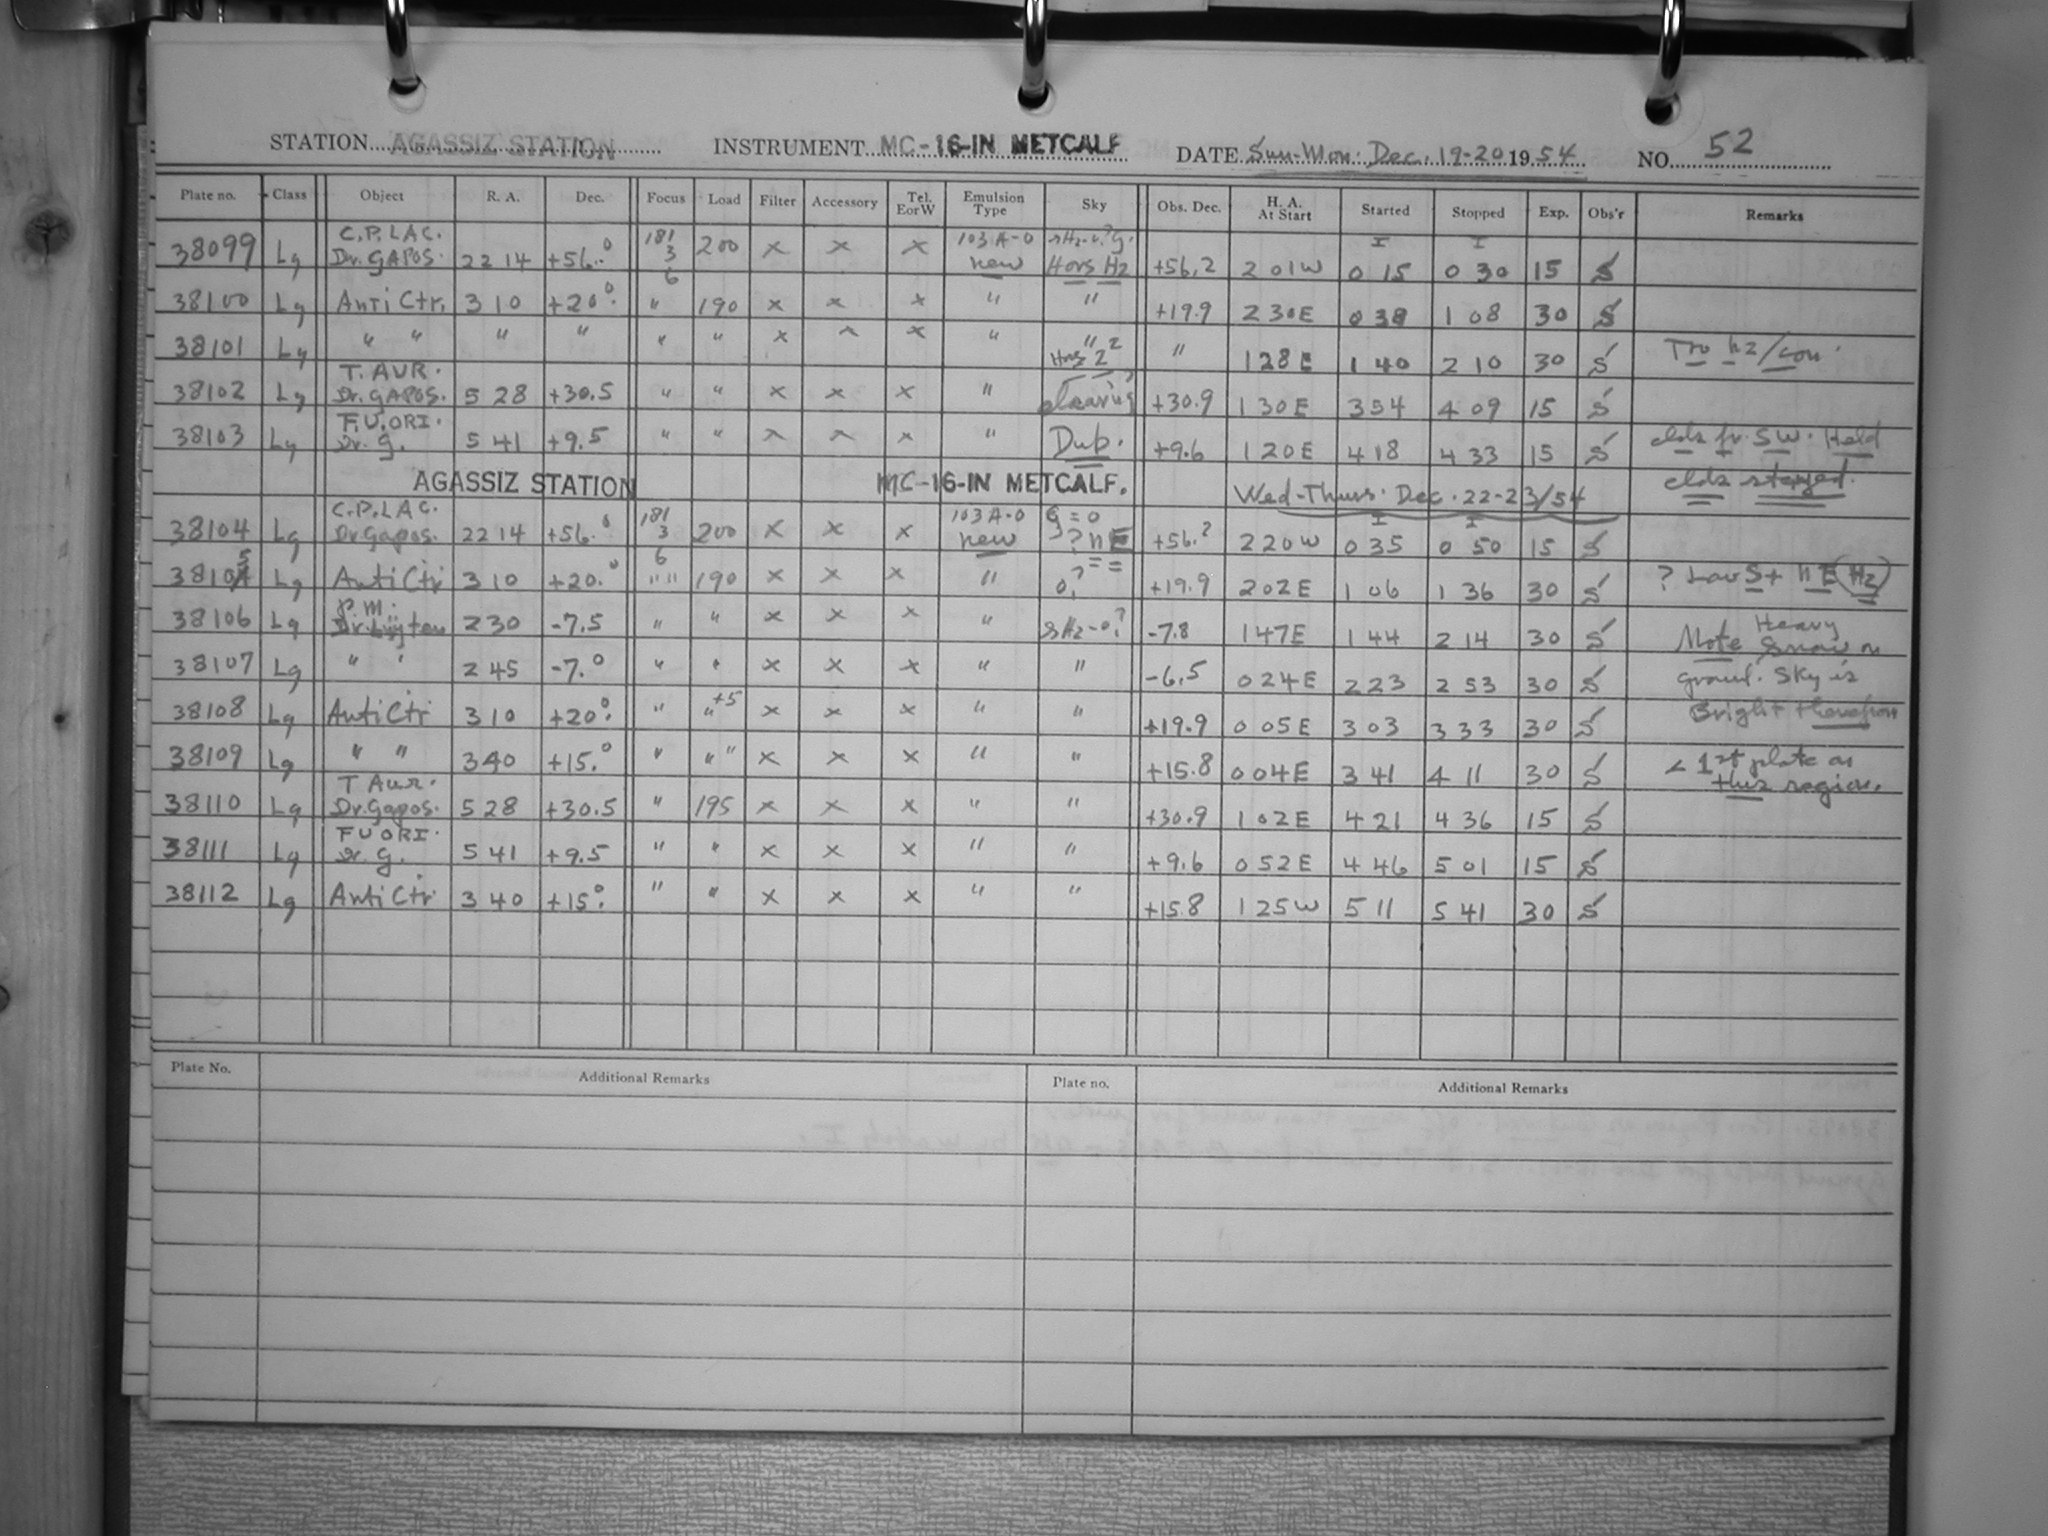 STATION AGASSIZ STATION INSTRUMENT MC-16-IN METCALF DATE Sun-Mon. Dec. 19-20 1954 NO. 52
Plate no. Class Object R. A. Dec. Focus Load Filter Accessory Tel. E or W Emulsion Type Sky Obs. Dec. H. A. At Start Started Stopped Exp. Obs'r Remarks
C.P. LAC. 181 103 A-O I I
38099 Lg Dr. GAPOS. 22 14 +56.0 3 200 x x x new Hors Hz +56.2 2 01W 0 15 0 30 15 S
6
38100 Lg Anti Ctr. 3 10 +20.0 " 190 x x x " " +19.9 2 30E 0 38 1 08 30 S
38101 Lg " " " " " " x x x " " " 1 28E 1 40 2 10 30 S
T. AUR.
38102 Lg Dr. GAPOS. 5 28 +30.5 " " x x x " clearing +30.9 1 30E 3 54 4 09 15 S
F.U. ORI.
38103 Lg Dr. G. 5 41 +9.5 " " x x x " Dub. +9.6 1 20E 4 18 4 33 15 S clds fr. SW. Held
AGASSIZ STATION MC-16-IN METCALF. Wed-Thurs. Dec. 22-23/54 clds stayed.
C.P. LAC. 181 103 A-O G = 0 I I
38104 Lg Dr Gapos. 22 14 +56.0 3 200 x x x new ? n E +56.2 2 20W 0 35 0 50 15 S
6
38105 Lg Anti Ctr 3 10 +20.0 " " 190 x x x " 0.? +19.9 2 02E 1 06 1 36 30 S ? Low S + n E (Hz)
P.M.
38106 Lg Dr. Luyten 2 30 -7.5 " " x x x " sHz-0? -7.8 1 47E 1 44 2 14 30 S Note Heavy Snow on
38107 Lg " " 2 45 -7.0 " " x x x " " -6.5 0 24E 2 23 2 53 30 S ground. Sky is
38108 Lg Anti Ctr 3 10 +20.0 " " +5 x x x " " +19.9 0 05E 3 03 3 33 30 S Bright therefrom
38109 Lg " " 3 40 +15.0 " " " x x x " " +15.8 0 04E 3 41 4 11 30 S < 1st plate on
T Aur. this region.
38110 Lg Dr. Gapos. 5 28 +30.5 " 195 x x x " " +30.9 1 02E 4 21 4 36 15 S
F U ORI.
38111 Lg Dr. G. 5 41 +9.5 " " x x x " " +9.6 0 52E 4 46 5 01 15 S
38112 Lg Anti Ctr 3 40 +15.0 " " x x x " " +15.8 1 25W 5 11 5 41 30 S
Plate No. Additional Remarks Plate no. Additional Remarks